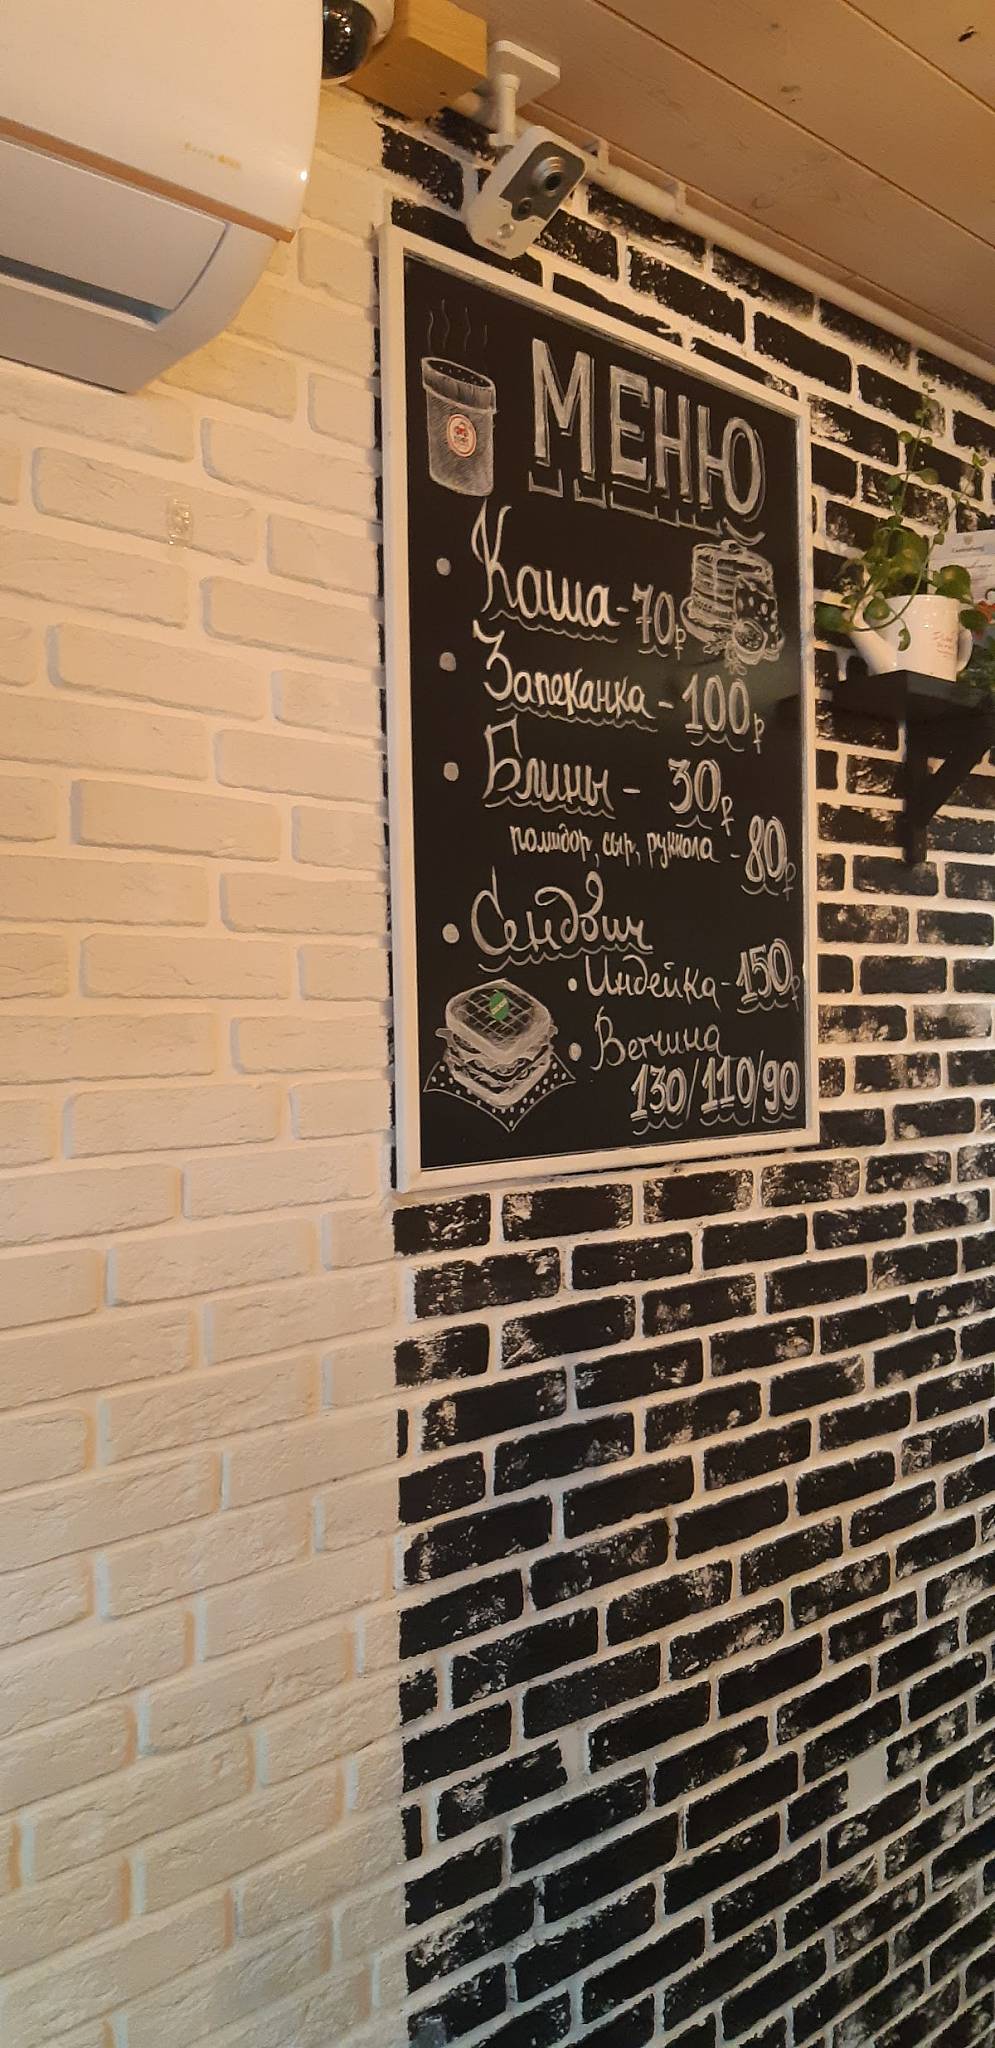 МЕНЮ
Каша - 70₽
Запеканка - 100₽
Блины - 30₽
помидор, сыр, руккола - 80₽
Сендвич
Индейка - 150₽
Ветчина
130/110/90